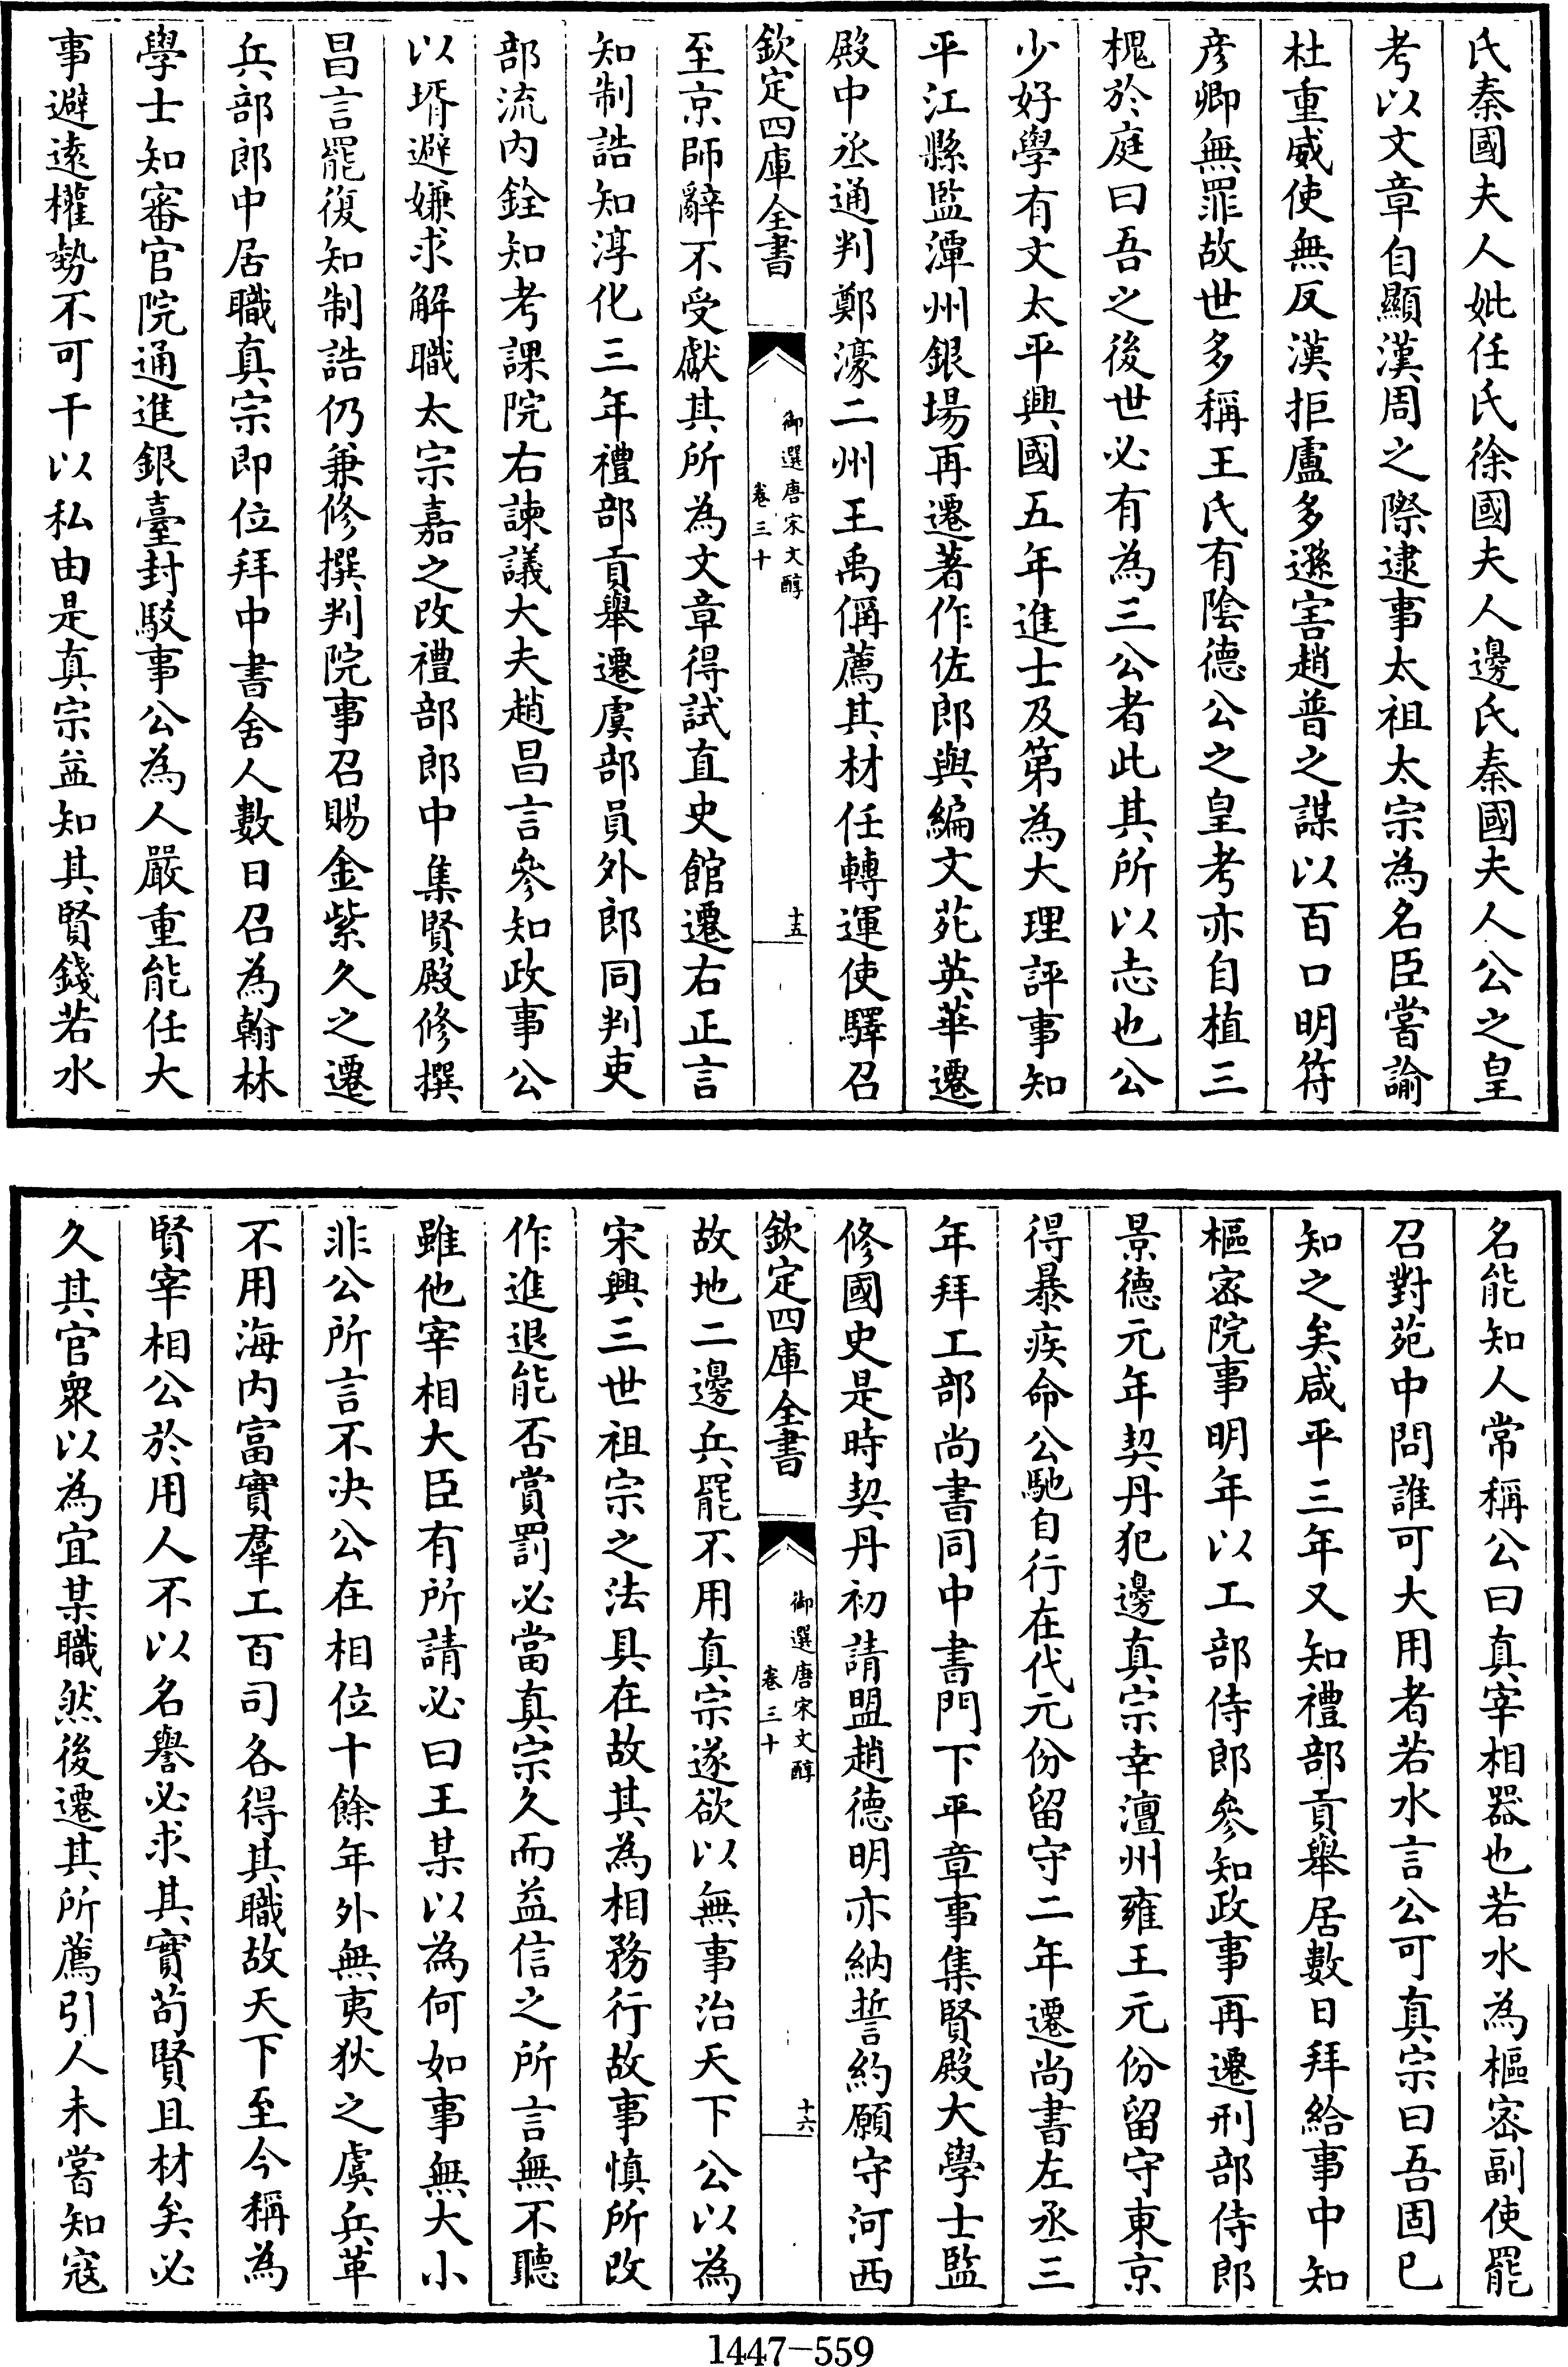 氏秦國夫人妣任氏徐國夫人邊氏秦國夫人公之皇
考以文章自顯漢周之際逮事太祖太宗為名臣嘗諭
杜重威使無反漢拒盧多遜害趙普之謀以百口明符
彦卿無罪故世多稱王氏有陰德公之皇考亦自植三
槐於庭曰吾之後世必有為三公者此其所以志也公
少好學有文太平興國五年進士及第為大理評事知
平江縣監潭州銀場再遷著作佐郎與編文苑英華遷
殿中丞通判鄭濠二州王禹偁薦其材任轉運使驛召
欽定四庫全書
御選唐宋文醇
卷三十
十五
至京師辭不受獻其所為文章得試直史館遷右正言
知制誥知淳化三年禮部貢舉遷虞部員外郎同判吏
部流内銓知考課院右諫議大夫趙昌言參知政事公
以壻避嫌求解職太宗嘉之改禮部郎中集賢殿修撰
昌言罷復知制誥仍兼修撰判院事召賜金紫久之遷
兵部郎中居職真宗即位拜中書舍人數日召為翰林
學士知審官院通進銀臺封駁事公為人嚴重能任大
事避逺權勢不可干以私由是真宗益知其賢錢若水
名能知人常稱公曰真宰相器也若水為樞密副使罷
召對苑中問誰可大用者若水言公可真宗曰吾固已
知之矣咸平三年又知禮部貢舉居數日拜給事中知
樞密院事明年以工部侍郎參知政事再遷刑部侍郎
景德元年契丹犯邊真宗幸澶州雍王元份留守東京
得暴疾命公馳自行在代元份留守二年遷尚書左丞三
年拜工部尚書同中書門下平章事集賢殿大學士監
修國史是時契丹初請盟趙德明亦納誓約願守河西
欽定四庫全書
御選唐宋文醇
卷三十
十六
故地二邊兵罷不用真宗遂欲以無事治天下公以為
宋興三世祖宗之法具在故其為相務行故事慎所改
作進退能否賞罰必當真宗久而益信之所言無不聽
雖他宰相大臣有所請必曰王某以為何如事無大小
非公所言不决公在相位十餘年外無夷狄之虞兵革
不用海内富實羣工百司各得其職故天下至今稱為
賢宰相公於用人不以名譽必求其實茍賢且材矣必
久其官衆以為宜某職然後遷其所薦引人未嘗知寇
1447-559